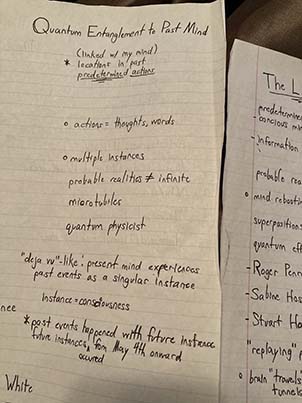 Quantum Entanglement to Past Mind
(linked w/ my mind)
* locations in past
predetermined actions
o actions = thoughts, words
o multiple instances
probable realities ≠ infinite
microtubiles
quantum physicist
"deja vu"-like: present mind experiences
past events as a singular instance
instance=consciousness
*past events happened with future instance
future instances, from May 4th onward
occured
nee
White
The L
predetermine
- concious min
- information
probable rea
o mind rebootin
superposition
quantum eff
- Roger Penr
- Sabine Hos
- Stuart Ha
"replaying" p
o brain "travels"
tunnel